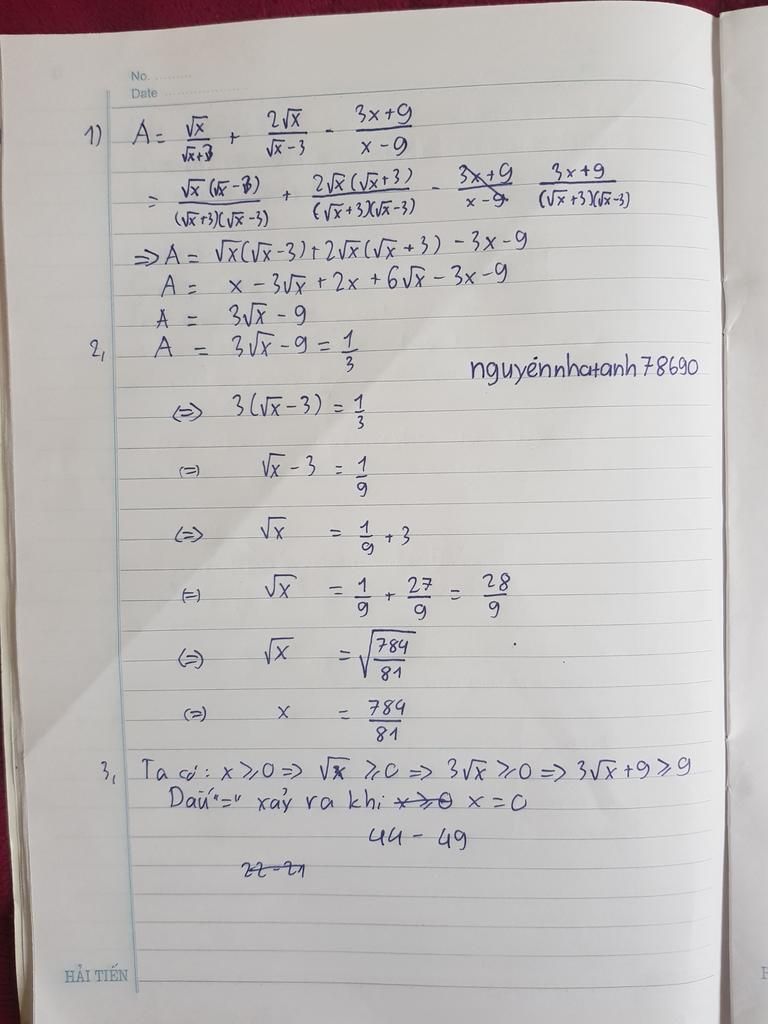 No. ..........
Date ......................
1) A = √x/(√x+3) + 2√x/(√x-3) - (3x+9)/(x-9)
= √x(√x-3)/((√x+3)(√x-3)) + 2√x(√x+3)/((√x+3)(√x-3)) - (3x+9)/(x-9) (3x+9)/((√x+3)(√x-3))
=> A = √x(√x-3)+2√x(√x+3) -3x-9
A = x-3√x+2x+6√x-3x-9
A = 3√x-9
2, A = 3√x-9 = 1/3
nguyễnnhatanh78690
(=) 3(√x-3) = 1/3
(=) √x-3 = 1/9
(=) √x = 1/9 + 3
(=) √x = 1/9 + 27/9 = 28/9
(=) √x = √(784/81)
(=) x = 784/81
3, Ta có: x ⩾ 0 => √x ⩾ 0 => 3√x ⩾ 0 => 3√x + 9 ⩾ 9
Dấu "=" xảy ra khi x⩾0 x = 0
44 - 49
22-21
HẢI TIẾN